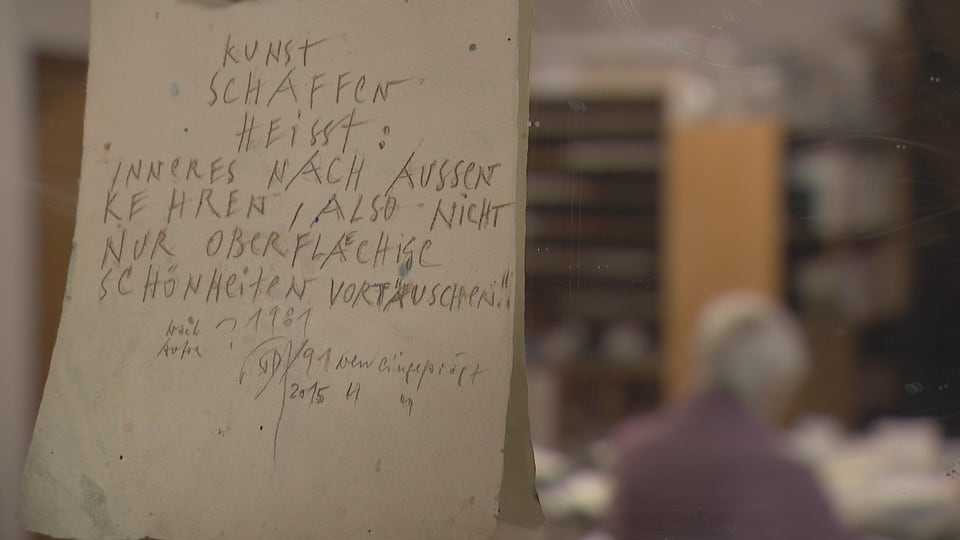 KUNST
SCHAFFEN
HEISST:
INNERES NACH AUSSEN
KEHREN, ALSO NICHT
NUR OBERFLAECHIGE
SCHÖNHEITEN VORTÄUSCHEN!!
nach ? 1981
91 neu eingeprägt
2015 " "